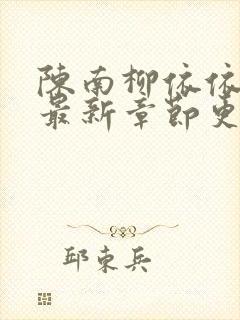 陈南柳依依
最新章节更
邱东兵